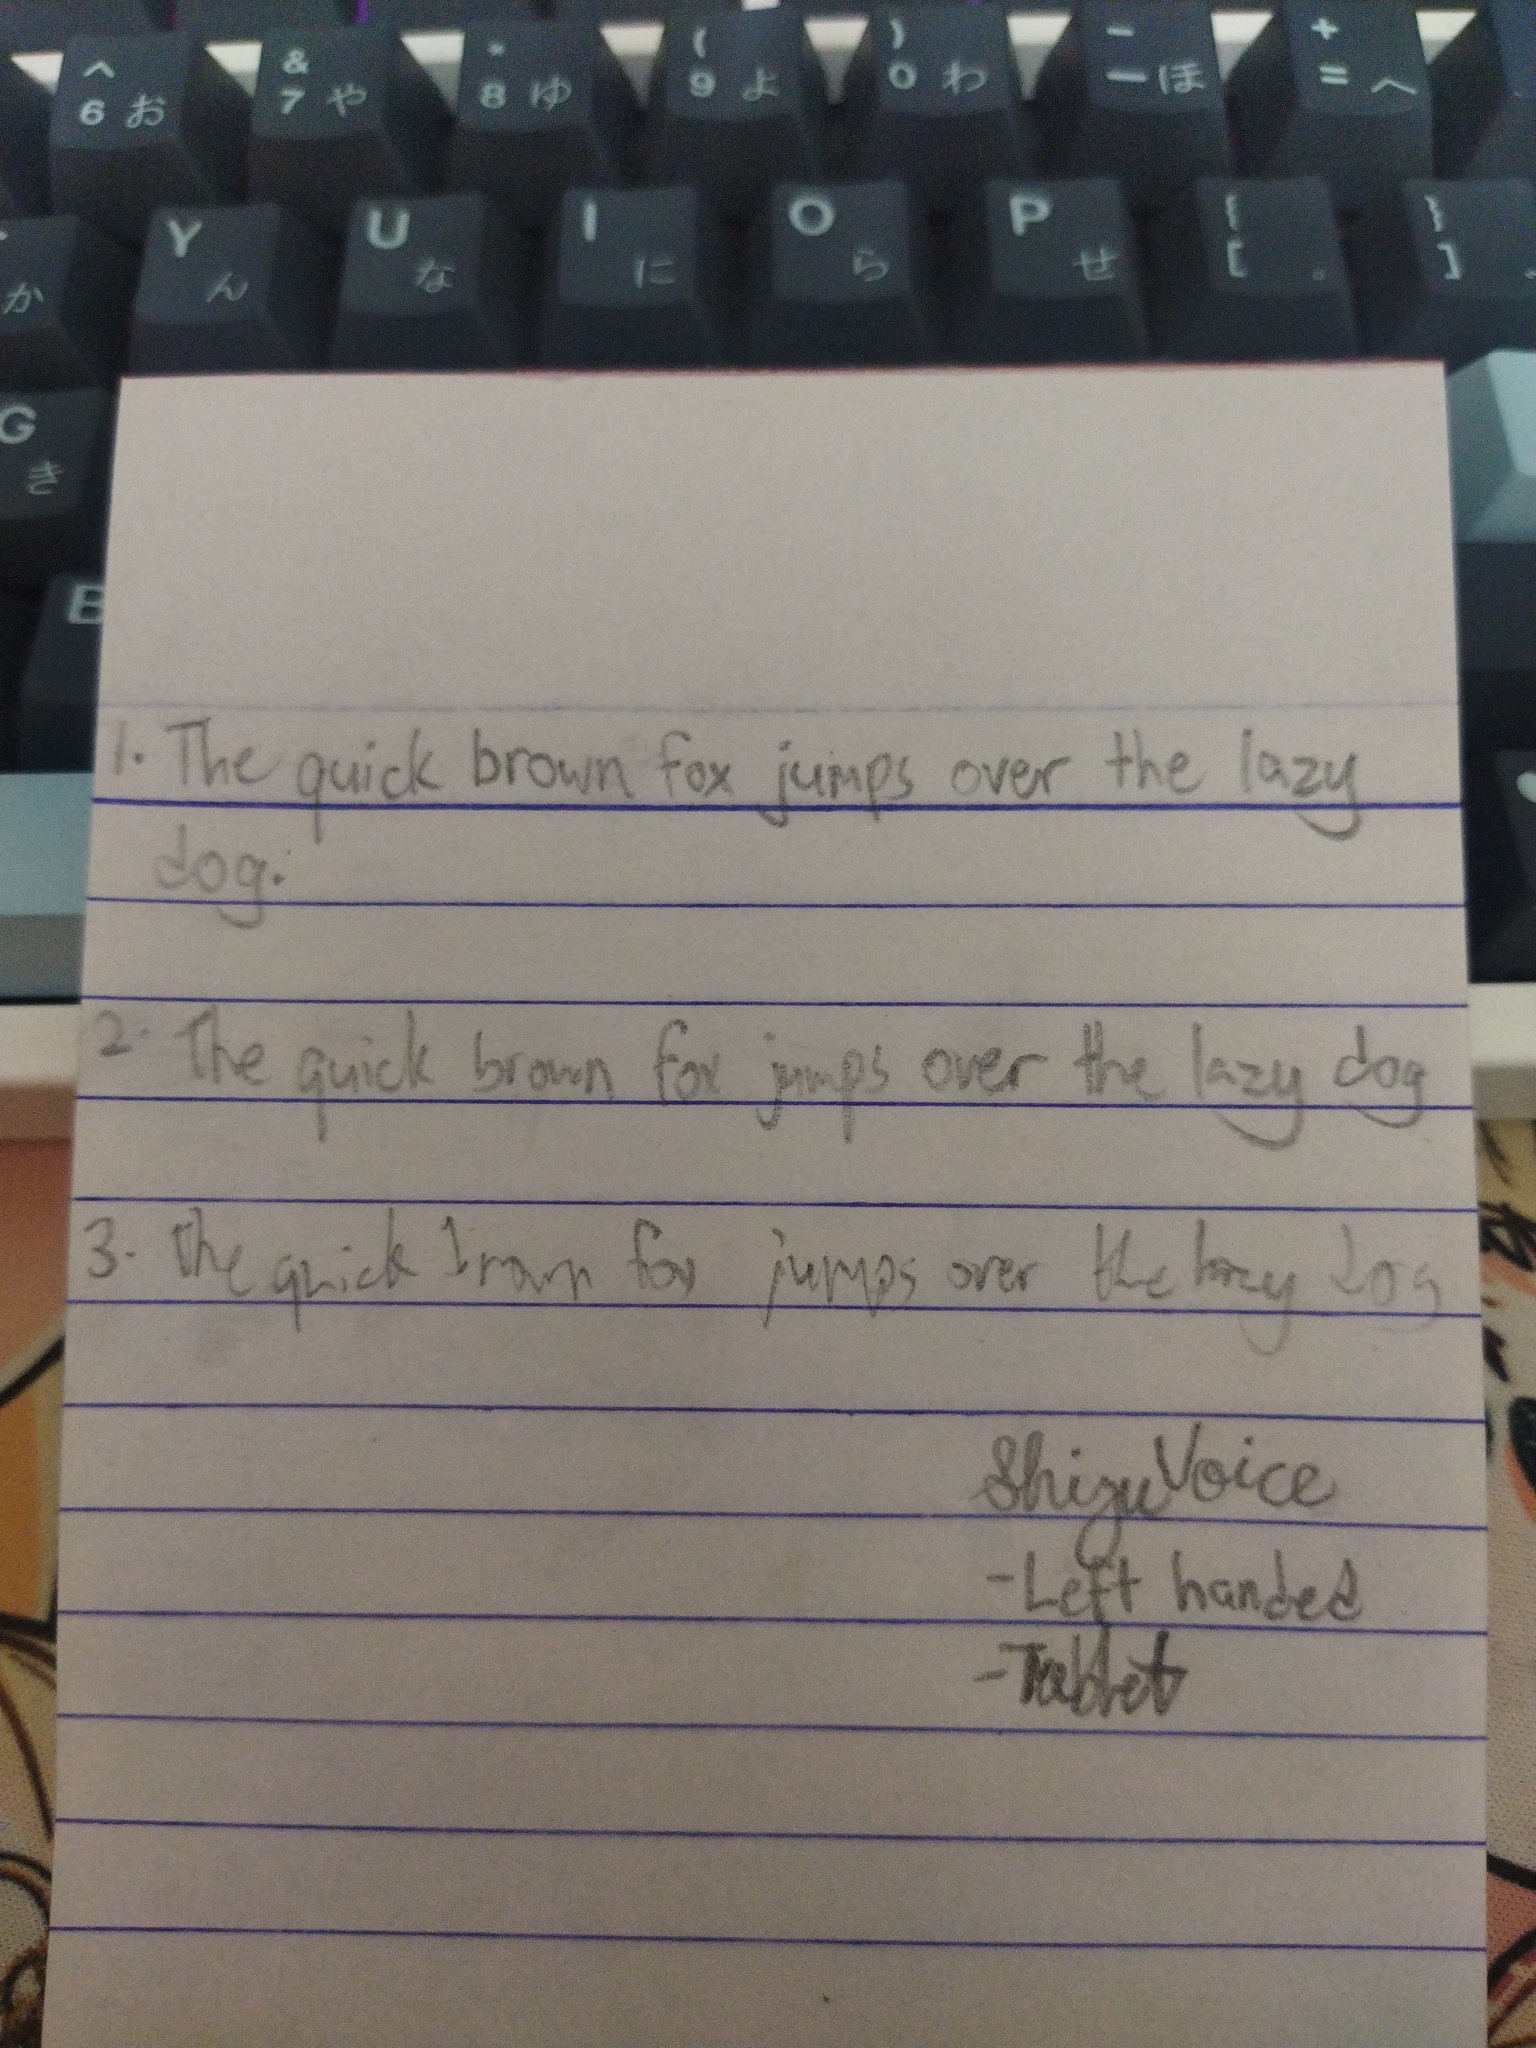 ^ & * ( ) - +
6 お 7 や 8 ゆ 9 よ 0 わ ー ほ = へ
か Y ん U な I に O ら P せ { [ 。 } ]
G き
B
1. The quick brown fox jumps over the lazy
dog.
2. The quick brown fox jumps over the lazy dog
3. The quick brown fox jumps over the lazy dog
ShizuVoice
- Left handed
- Tablet